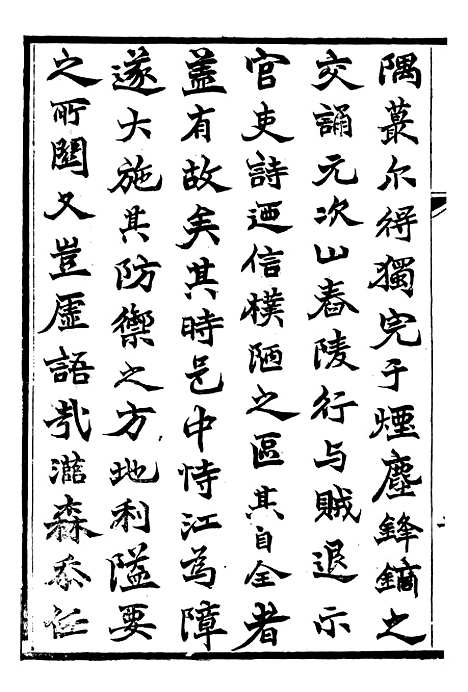 隅蕞尔得獨完于煙塵鋒鏑之
交誦元次山舂陵行与賊退示
官吏詩迺信樸陋之區其自全者
蓋有故矣其時邑中恃江爲障
遂大施其防禦之方地利隘要
之所關又豈虛語哉澔森忝任